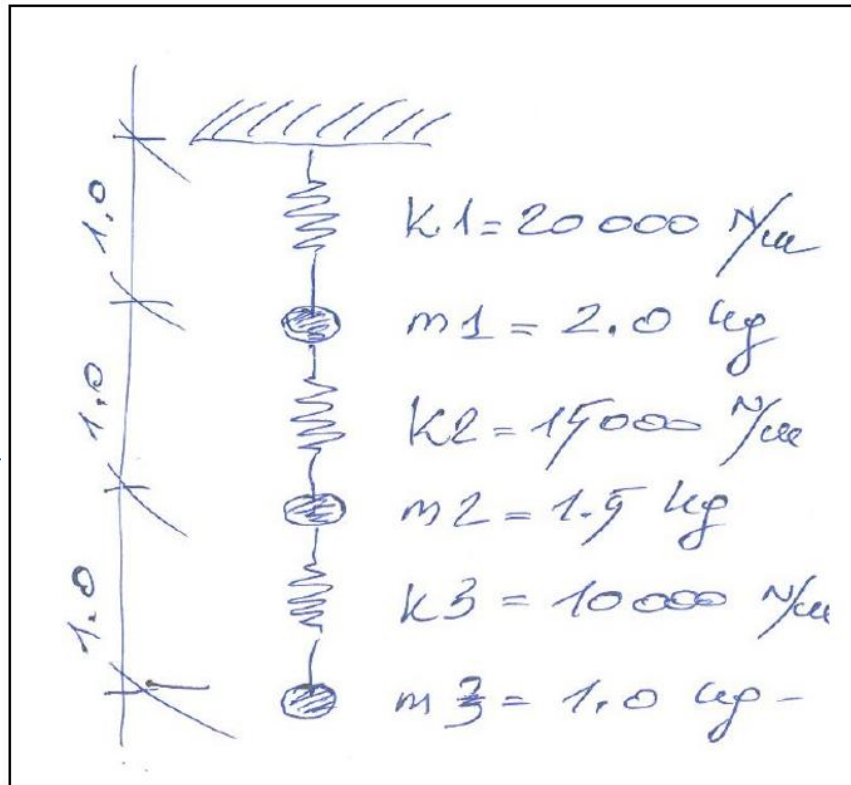 1,0
k1 = 20 000 N/m
m1 = 2.0 kg
1,0
k2 = 15000 N/m
m2 = 1.5 kg
1.0
k3 = 10000 N/m
m3 = 1,0 kg -